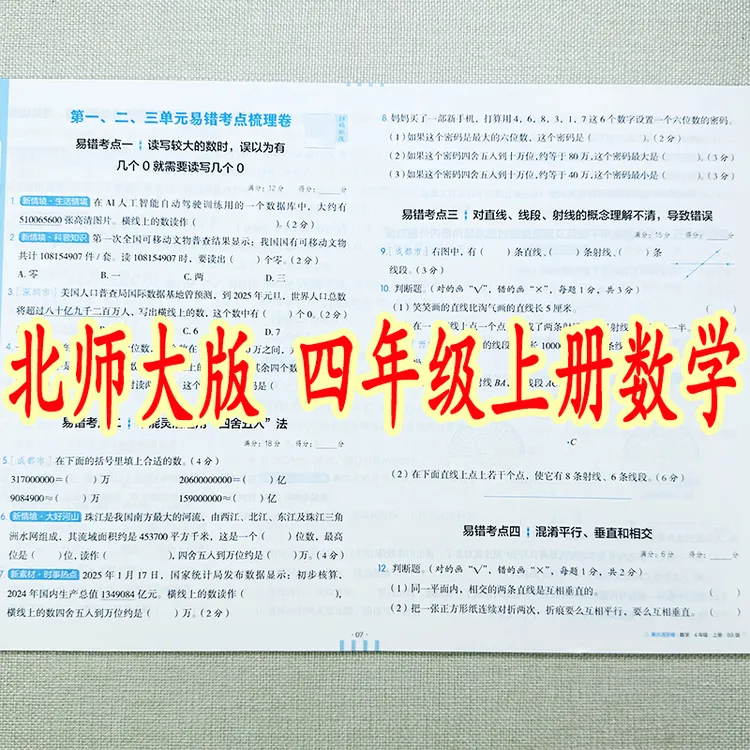 第一、二、三单元易错考点梳理卷
易错考点一 读写较大的数时,误以为有
几个0就需要读写几个0
满分:12分 得分:____分
1. 新情境·生活情境 在AI人工智能自动驾驶训练用的一个数据库中,大约有
510065600张高清图片。横线上的数读作( )。(2分)
2. 新情境·科普知识 第一次全国可移动文物普查结果显示:我国国有可移动文物
共计108154907件/套。读108154907时,要读出( )个零。(2分)
A. 零 B. 一 C. 两 D. 三
3. [深圳市] 美国人口普查局国际数据基地曾预测,到2025年元旦,世界人口总数
将超过八十亿九千二百万人,写出横线上的数,这个数中有( )个0。(2分)
C. 6 D. 7
4.
北师大版 四年级上册数学
“四舍五入”法
满分:18分 得分:____分
5. [成都市] 在下面的括号里填上合适的数。(4分)
317000000=( )万 20600000000=( )亿
9084900≈( )万 159000000≈( )亿
6. 新情境·大好河山 珠江是我国南方最大的河流,由西江、北江、东江及珠江三角
洲水网组成,其流域面积约是453700平方千米,这是一个( )位数,最高
位是( )位,读作( ),四舍五入到万位约是( )万。(4分)
7. 新素材·时事热点 2025年1月17日,国家统计局发布数据显示:初步核算,
2024年国内生产总值1349084亿元。横线上的数读作( ),
横线上的数四舍五入到万位约是( )万。(2分)
·07·
8. 妈妈买了一部新手机,打算用4,6,8,3,1,7这6个数字设置一个六位数的密码。
(1)如果这个密码是最大的六位数,这个密码是( )。(2分)
(2)如果这个密码四舍五入到十万位,约等于80万,这个密码最小是( )。(3分)
(3)如果这个密码四舍五入到十万位,约等于40万,这个密码最小是( )。(3分)
易错考点三 对直线、线段、射线的概念理解不清,导致错误
满分:15分 得分:____分
9. [成都市] 右图中,有( )条直线、( )条射线、( )条
线段。(3分)
10. 判断题。(对的画“√”,错的画“×”,每题1分,共3分)
(1)笑笑画的直线比淘气画的直线长5厘米。 ( )
·C
(2)在下面直线上点上若干个点,使它有8条射线、6条线段。(6分)
易错考点四 混淆平行、垂直和相交
满分:6分 得分:____分
12. 判断题。(对的画“√”,错的画“×”,每题1分,共2分)
(1)同一平面内,相交的两条直线是互相垂直的。 ( )
(2)把一张正方形纸连续对折两次,折痕要么互相平行,要么互相垂直。( )
数学 4年级 上册